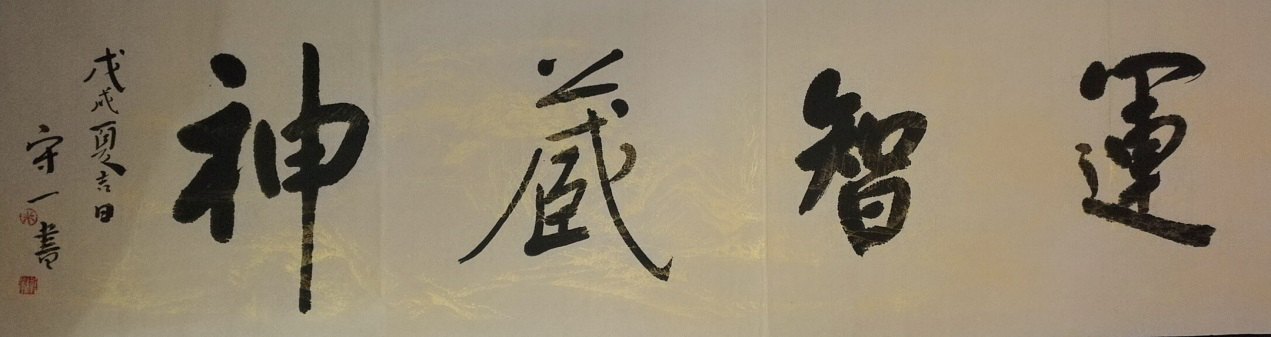 運智藏神
戊戌夏吉日
守一書